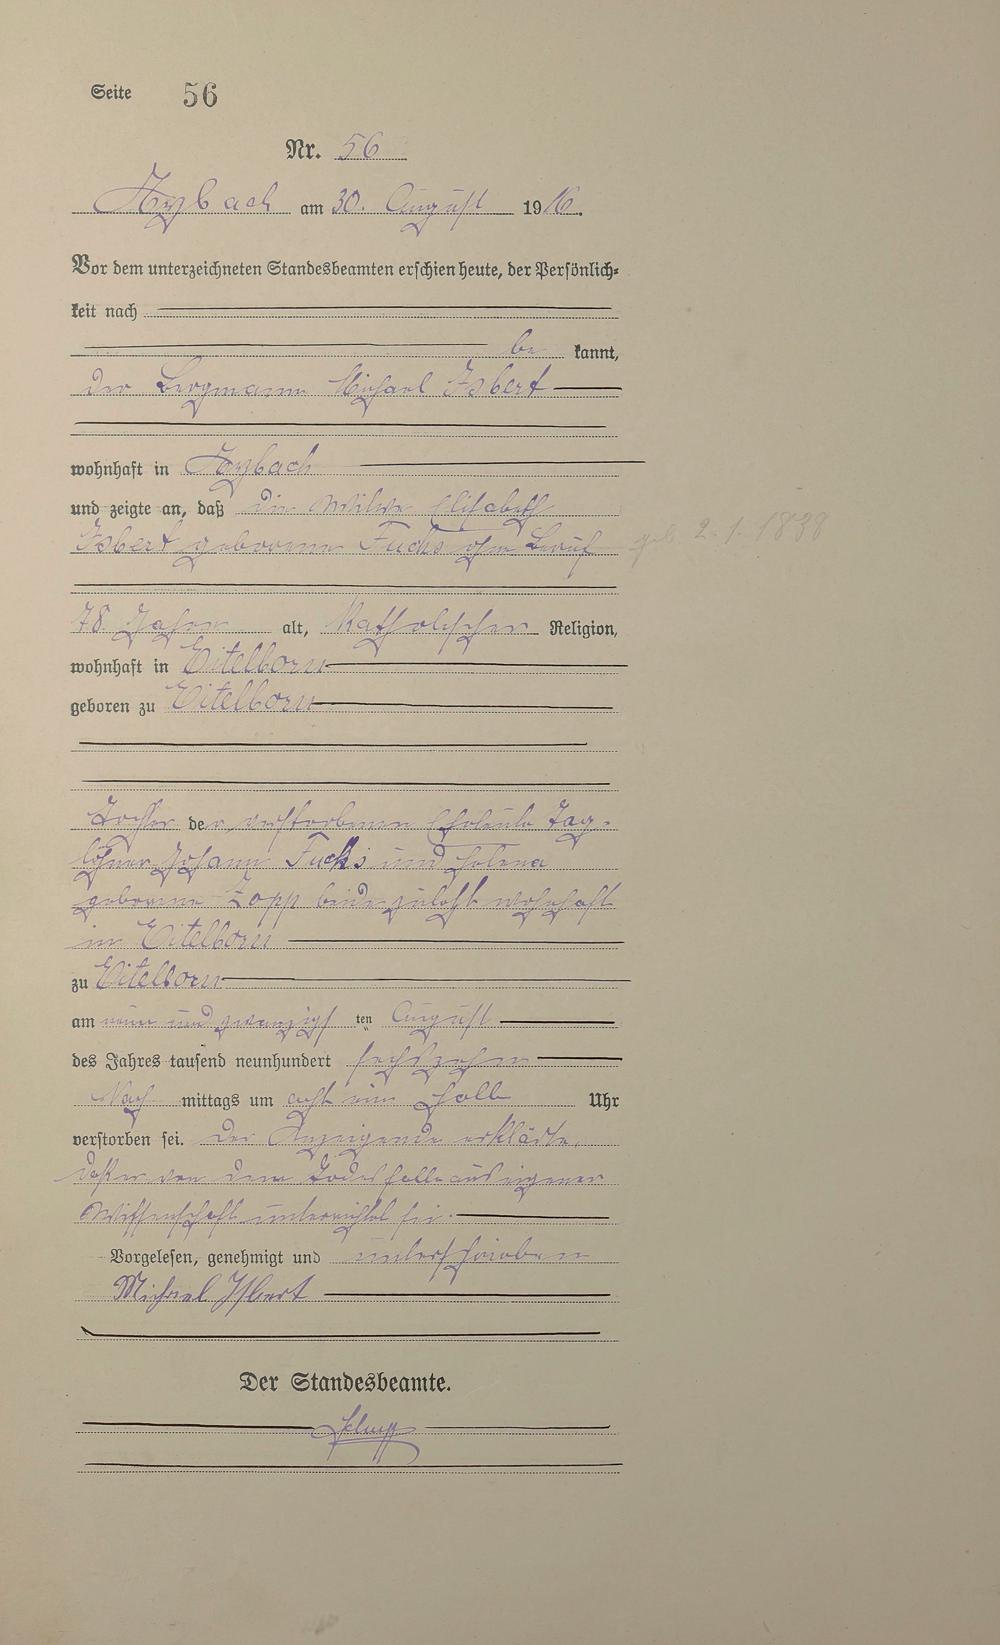 Seite 56
Nr. 56
Arzbach am 30. August 1916.
Vor dem unterzeichneten Standesbeamten erschien heute, der Persönlich-
keit nach
be kannt,
der Bergmann Michael Isbert
wohnhaft in Arzbach
und zeigte an, daß die Witwe Elisabeth
Isbert geborene Fuchs ohne Beruf
geb. 2. 1. 1838
78 Jahre alt, Katholischer Religion,
wohnhaft in Eitelborn
geboren zu Eitelborn
Tochter der verstorbenen Eheleute Tag-
löhner Johann Fuchs und Helena
geborene Zopp beide zuletzt wohnhaft
in Eitelborn
zu Eitelborn
am neun und zwanzigsten August
des Jahres tausend neunhundert sechszehn
Nach mittags um acht ein halb Uhr
verstorben sei. Der Anzeigende erklärte,
daß er von dem Todesfalle aus eigener
Wissenschaft unterrichtet sei.
Vorgelesen, genehmigt und unterschrieben
Michael Isbert
Der Standesbeamte.